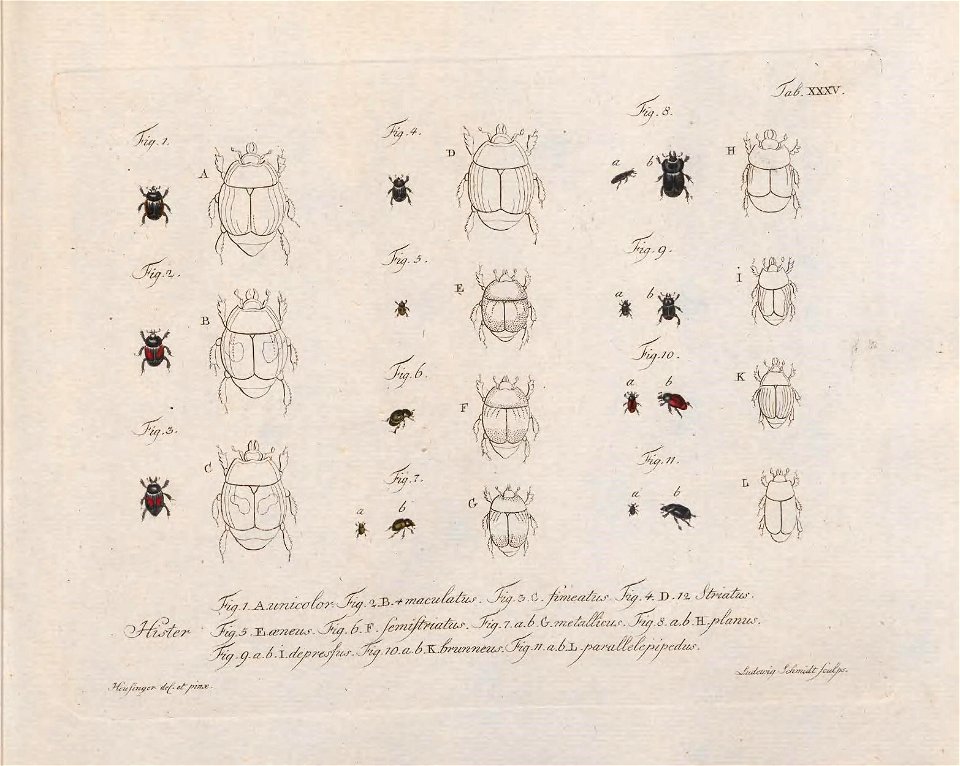 Tab. XXXV.
Fig. 1.
A
Fig. 2.
B
Fig. 3.
C
Fig. 4.
D
Fig. 5.
E
Fig. 6.
F
Fig. 7.
a b
G
Fig. 8.
a b
H
Fig. 9.
a b
I
Fig. 10.
a b
K
Fig. 11.
a b
L
Fig. 1. A. unicolor. Fig. 2. B. 4 maculatus. Fig. 3. C. fimeatus. Fig. 4. D. 12 Striatus.
Hister Fig. 5. E. æneus. Fig. 6. F. ſemiſtriatus. Fig. 7. a. b. G. metallicus. Fig. 8. a. b. H. planus.
Fig. 9. a. b. I. depreſsus. Fig. 10. a. b. K. brunneus. Fig. 11. a. b. L. parallelepipedus.
Heuſinger del. et pinx.
Ludewig Schmidt sculps.